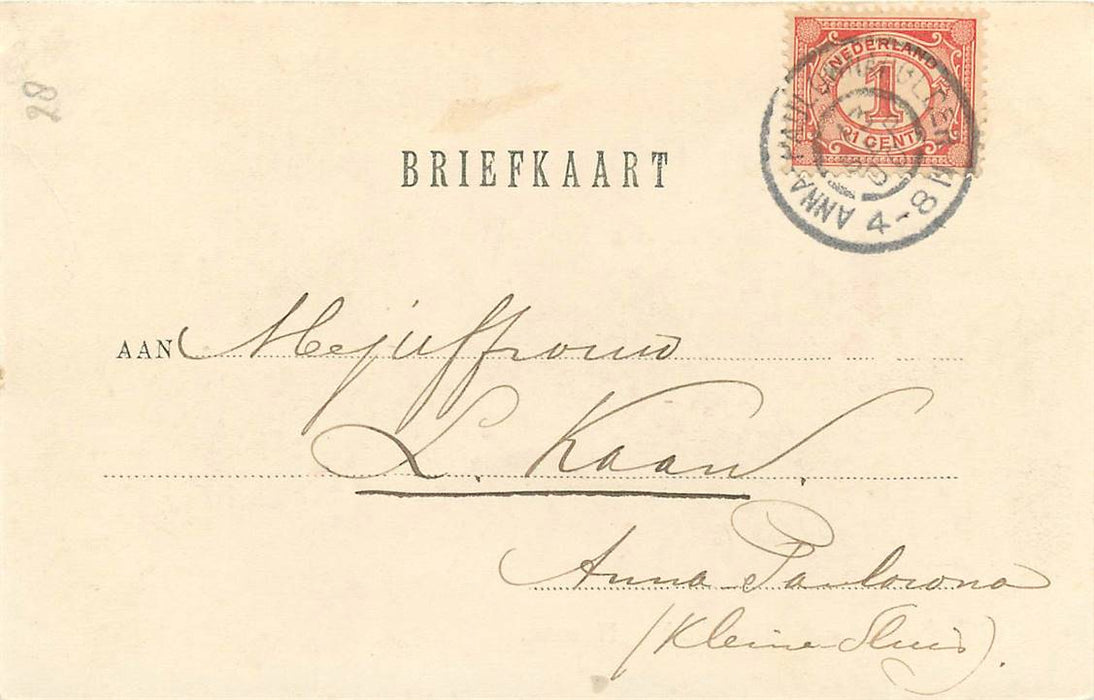 28
NEDERLAND
1
1 CENT
4-8 N
BRIEFKAART
AAN Mejuffrouw
L. Kaan.
Anna Paulowna
(Kleine Sluis).